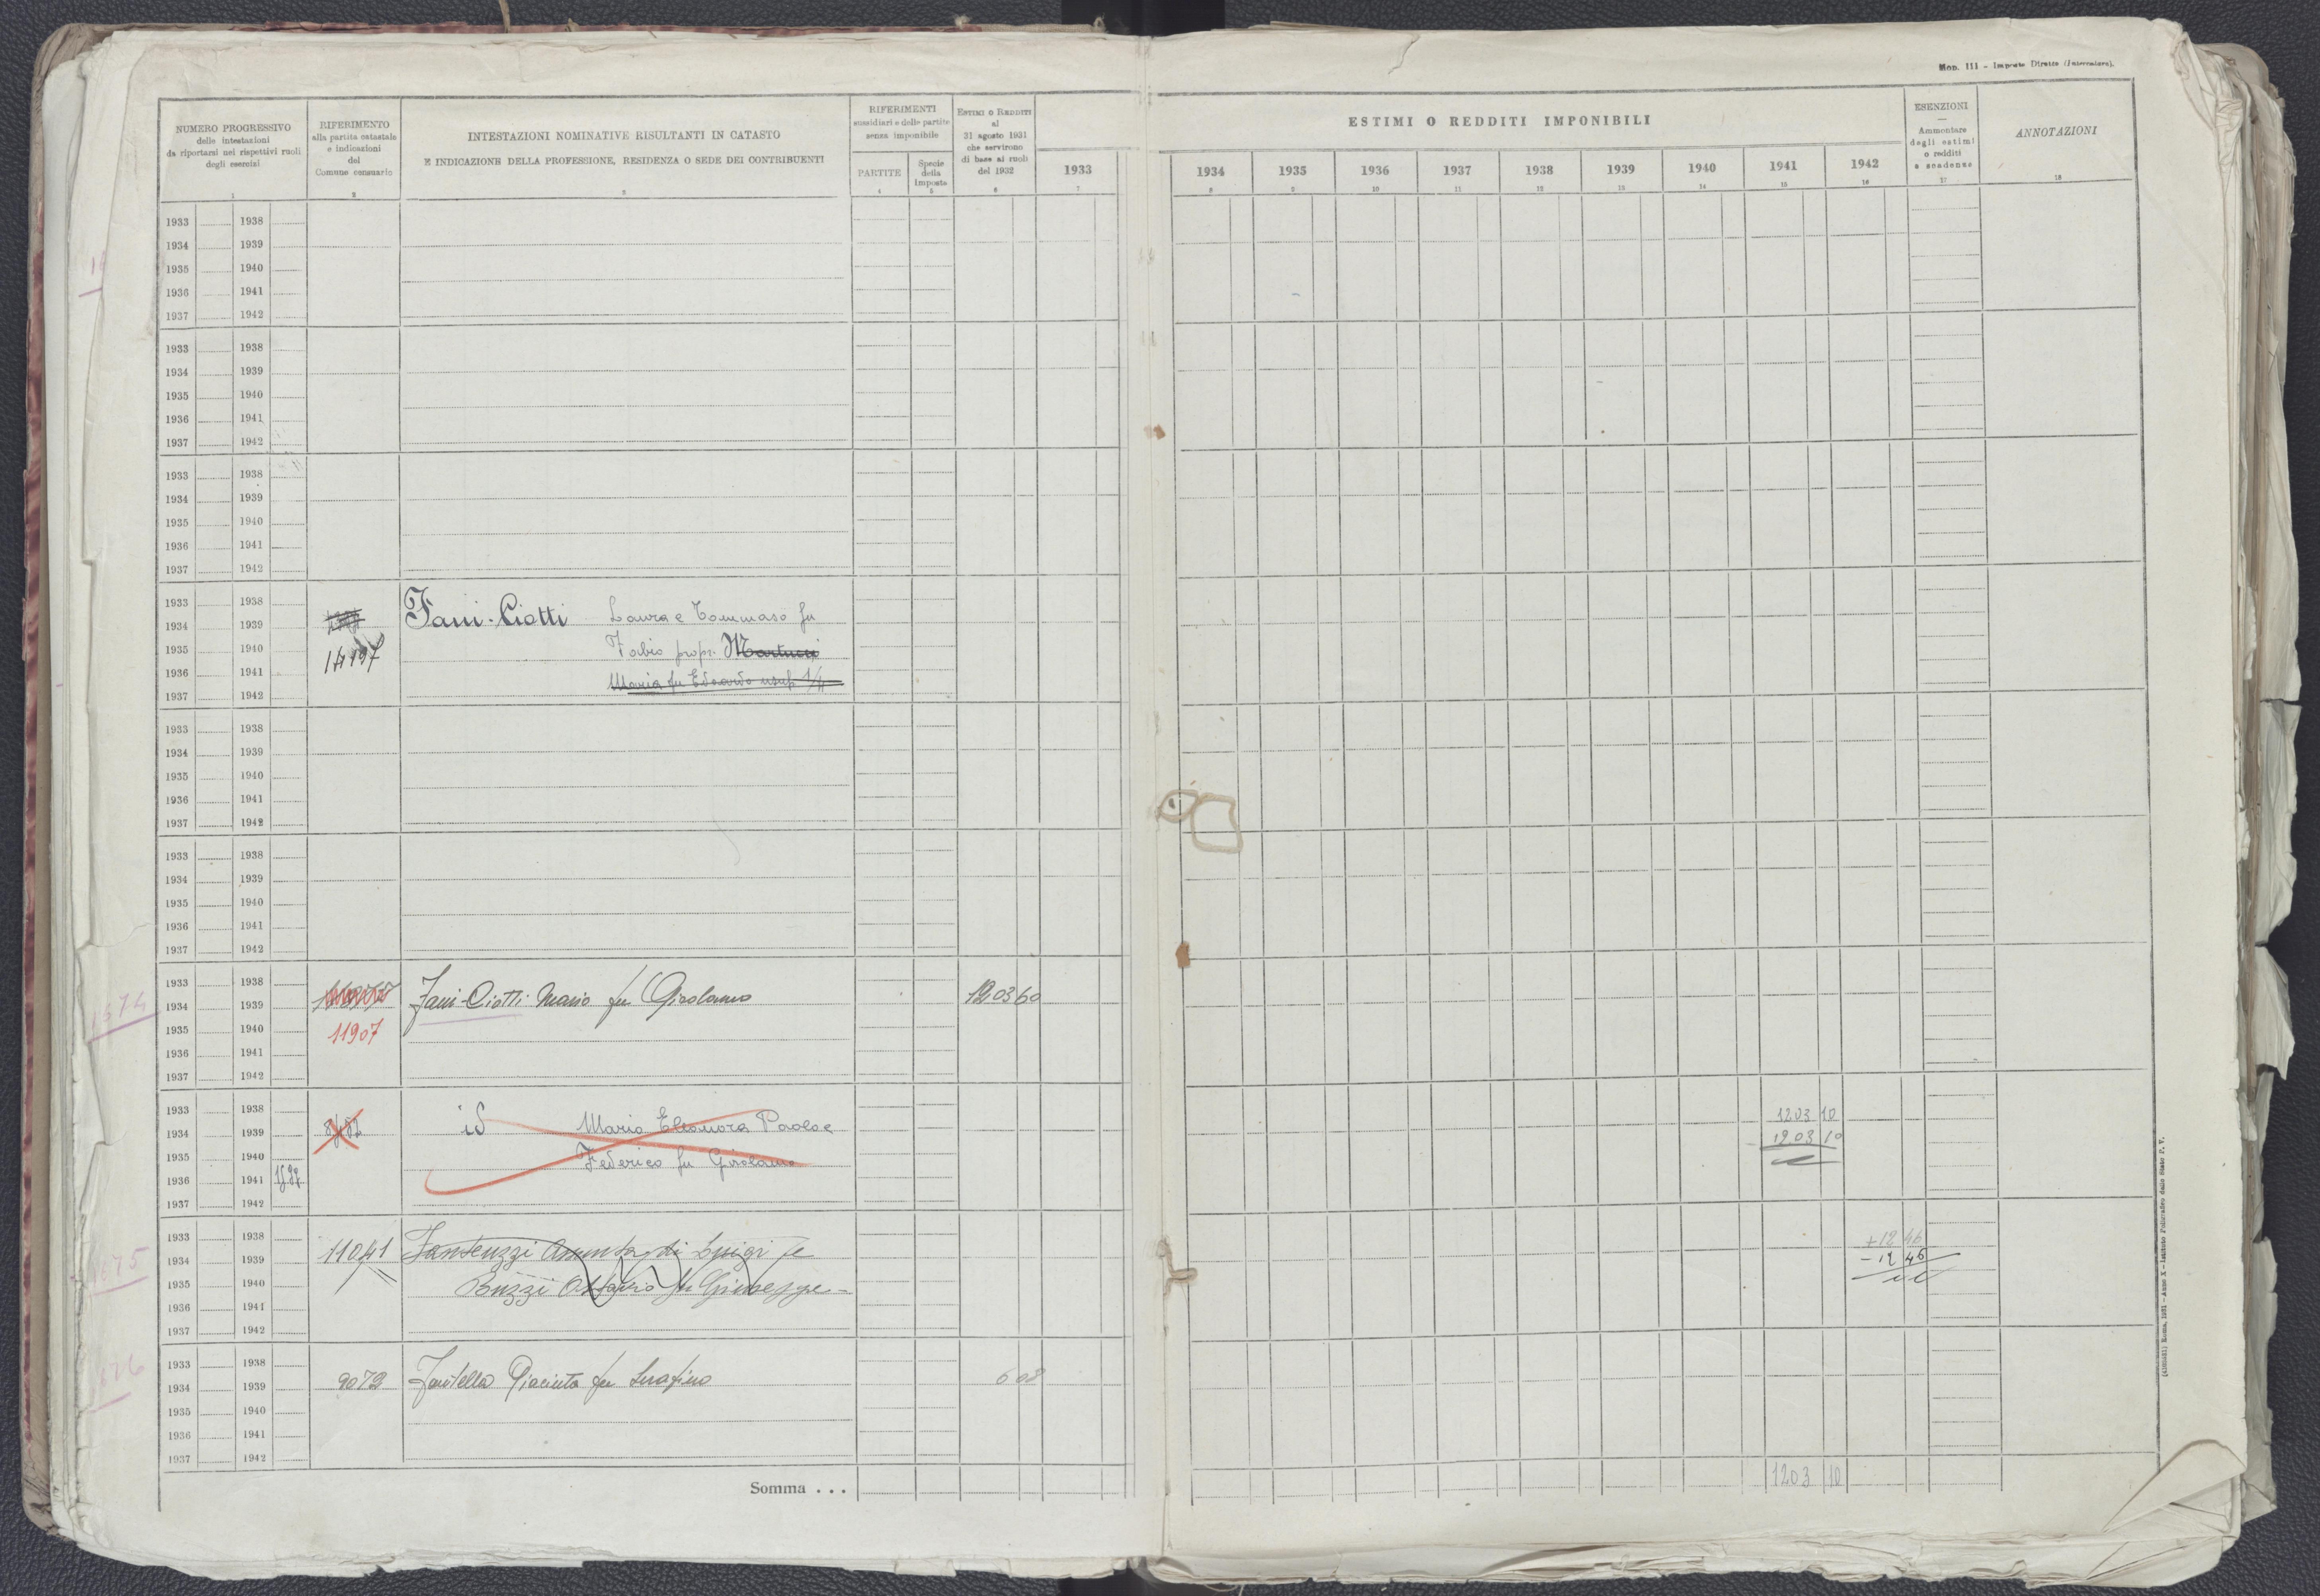 Mod. 111 - Imposte Dirette (Intercalare).
NUMERO PROGRESSIVO
delle intestazioni
da riportarsi nei rispettivi ruoli
degli esercizi
1
RIFERIMENTO
alla partita catastale
e indicazioni
del
Comune censuario
2
INTESTAZIONI NOMINATIVE RISULTANTI IN CATASTO
E INDICAZIONE DELLA PROFESSIONE, RESIDENZA O SEDE DEI CONTRIBUENTI
3
RIFERIMENTI
sussidiari e delle partite
senza imponibile
PARTITE
4
Specie
della
imposta
5
ESTIMI O REDDITI
al
31 agosto 1931
che servirono
di base ai ruoli
del 1932
6
1933
7
ESTIMI O REDDITI IMPONIBILI
1934 1935 1936 1937 1938 1939 1940 1941 1942
8 9 10 11 12 13 14 15 16
ESENZIONI
—
Ammontare
degli estimi
o redditi
e scadenze
17
ANNOTAZIONI
18
1933 1938
1934 1939
1935 1940
1936 1941
1937 1942
1933 1938
1934 1939
1935 1940
1936 1941
1937 1942
1933 1938
1934 1939
1935 1940
1936 1941
1937 1942
1933 1938
1934 1939 Fani-Ciotti Laura e Tommaso fu
1935 1940 14197 Fabio propr. Martucci
1936 1941 Maria fu Edoardo usuf. 1/4
1937 1942
1933 1938
1934 1939
1935 1940
1936 1941
1937 1942
1933 1938
1934 1939
1935 1940
1936 1941
1937 1942
1933 1938
1674 1934 1939 Fani-Ciotti Mario fu Girolamo 1203 60
1935 1940 11907
1936 1941
1937 1942
1933 1938 1203 10
1934 1939 8482 id Mario Eleonora Paolo e 1203 10
1935 1940 Federico fu Girolamo
1936 1941
1937 1942
1933 1938 +12 46
1675 1934 1939 11041 Fantenzzi Assunta di Luigi e -12 46
1935 1940 Buzzi Ottavio fu Giuseppe
1936 1941
1937 1942
1933 1938
1934 1939 9072 Fantella Giacinta fu Serafino 6 03
1935 1940
1936 1941
1937 1942
Somma . . . 1203 10